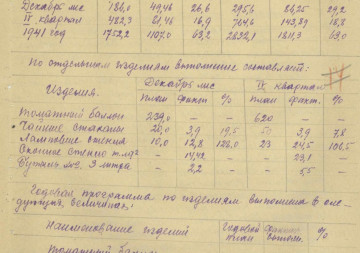 Декабрь м-ц 186,0 49,46 26,6 295,6 86,25 29,2
IV квартал 482,3 81,46 16,9 764,6 143,89 18,8
1941 год 1752,2 1107,0 63,2 2832,1 1811,3 64,0
По отдельным изделиям выполнение составляет:
Изделия. Декабрь м-ц IV квартал
план фактич % план факт. %
Томатный баллон 239,0 — — 620 — —
Чайные стаканы 20,0 3,9 19,5 50 3,9 7,8
Ламповые стекла 10,0 12,8 128,0 23 24,5 106,5
Оконное стекло — 14,42 — — 23,1 —
Бутыль 3 литра — 2,2 — — 5,5 —
Годовая программа по изделиям выполнена в сле-
дующих величинах:
Наименование изделий Годовой план Фактич. выполн. %
Томатный баллон